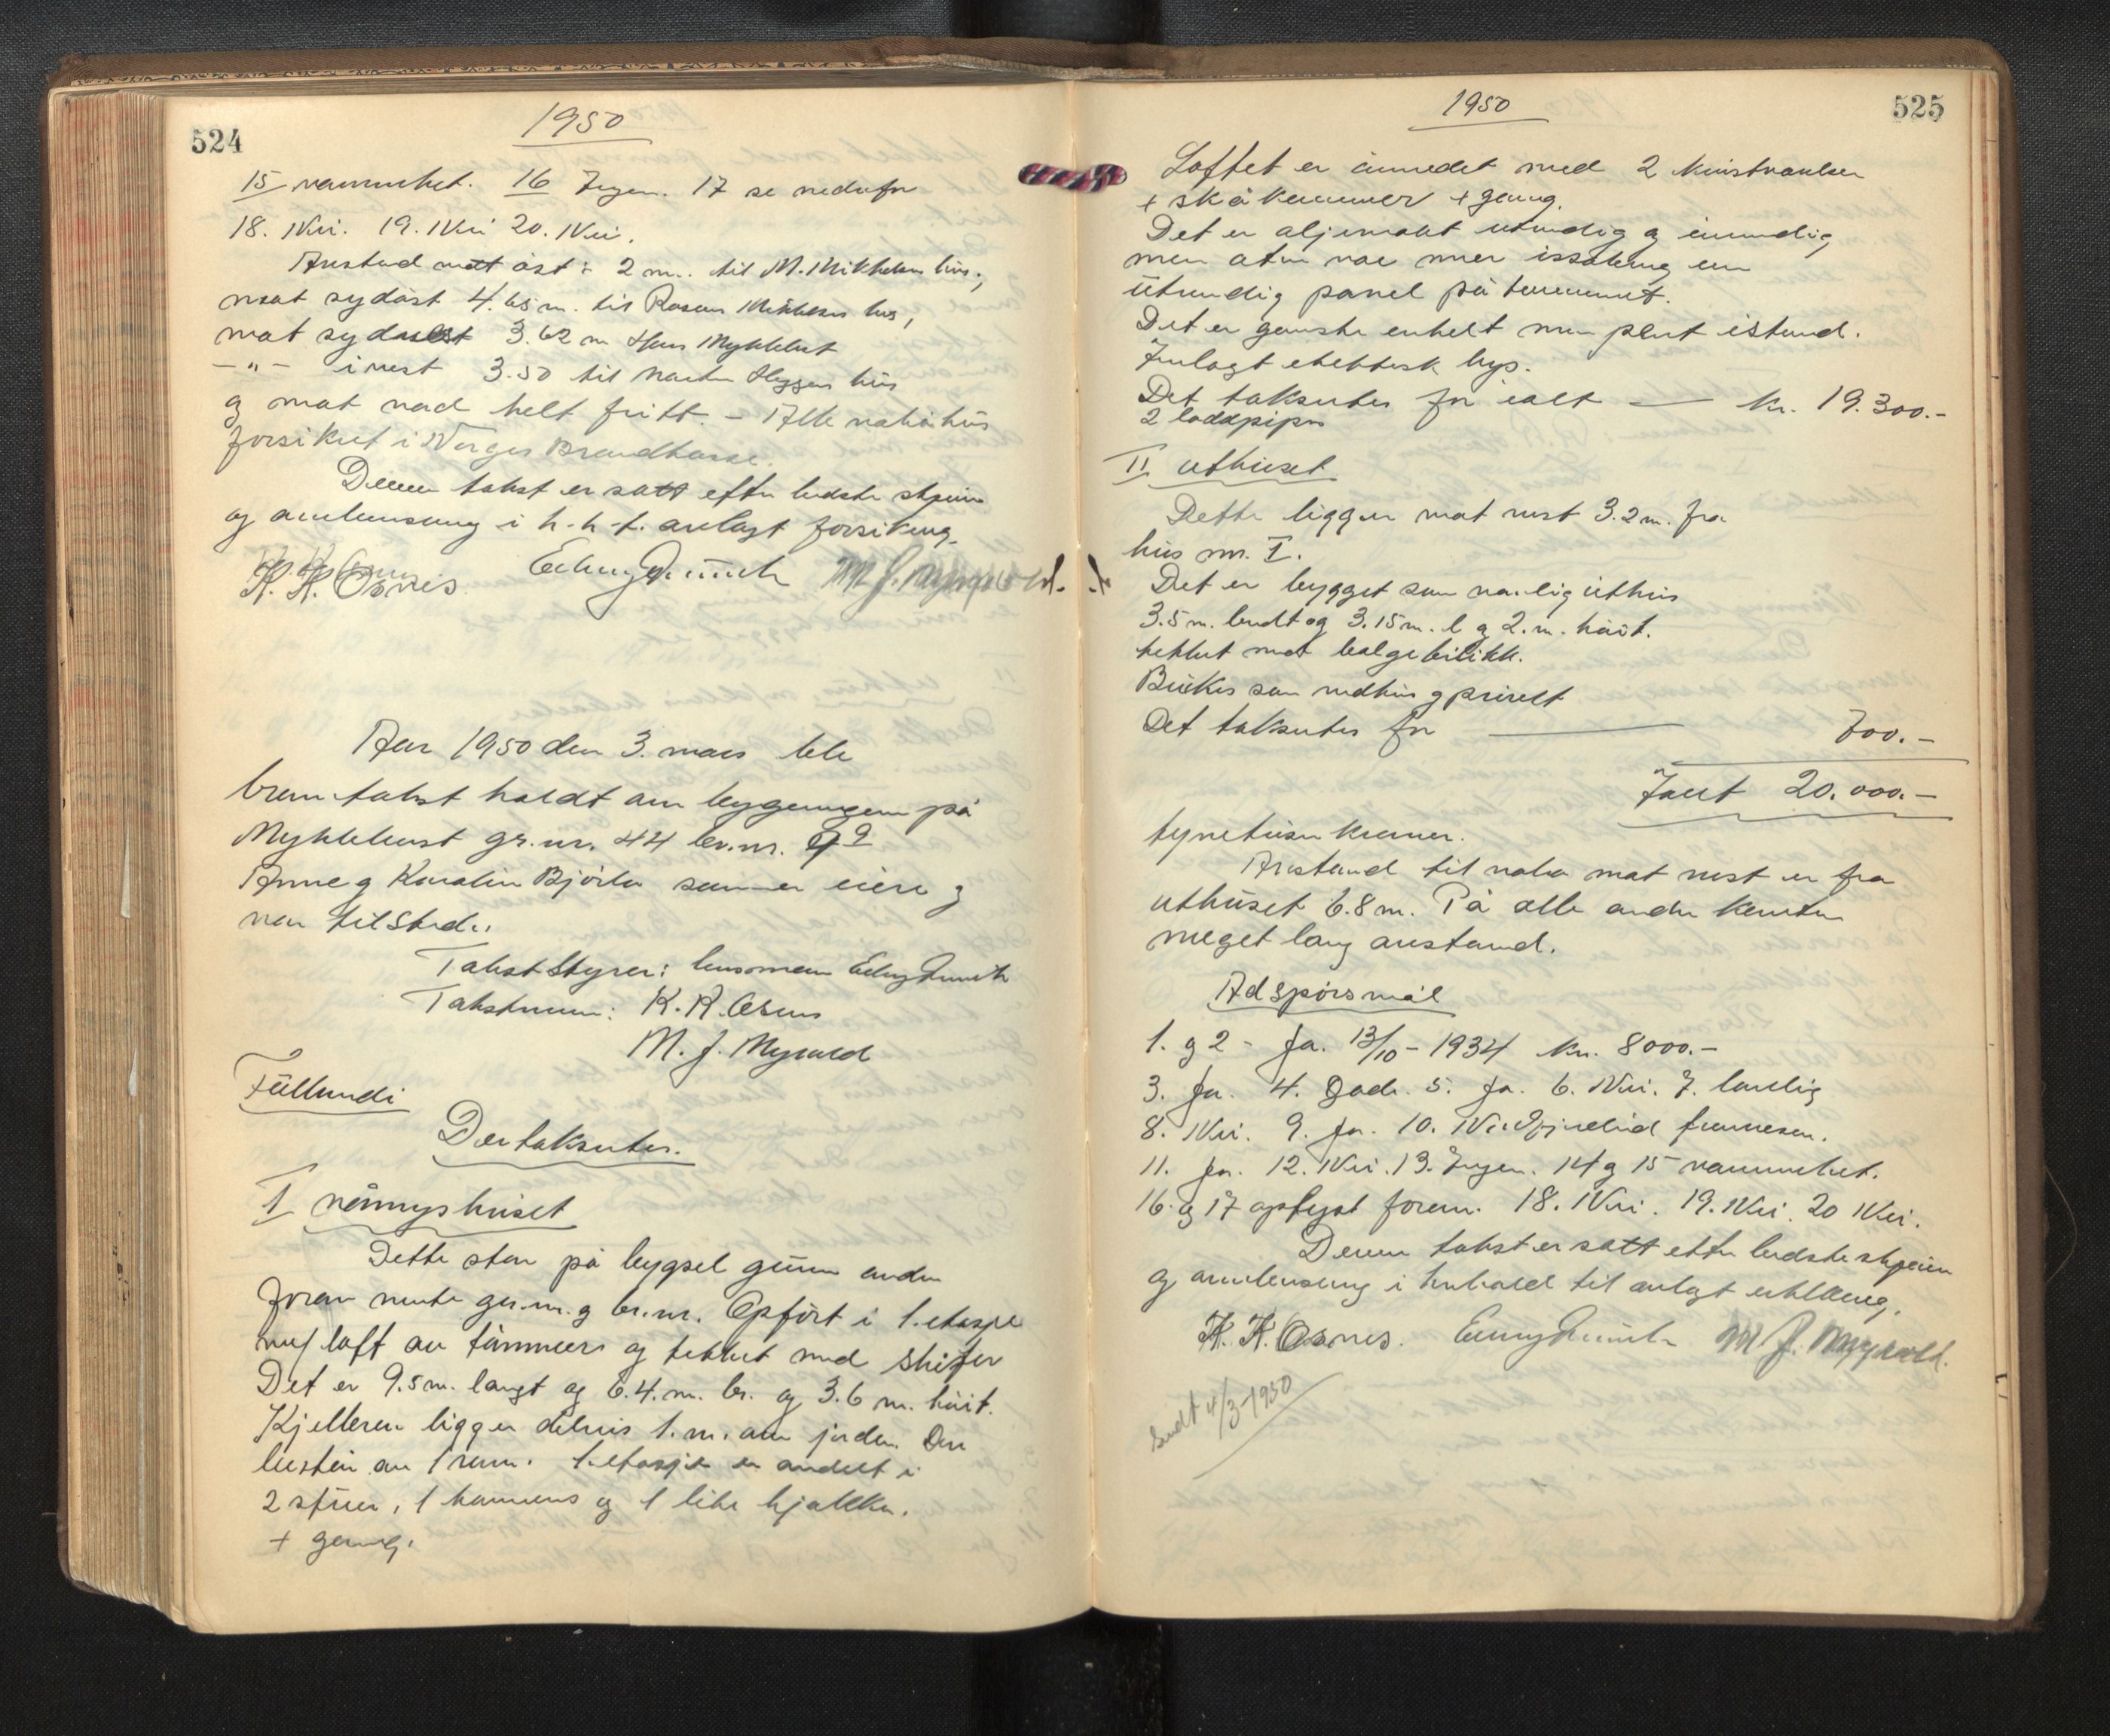 524
1950
15 rammehet. 16 Ingen. 17 se nedafor
18. Nei. 19. Nei 20. Nei.
Avstand mot øst: 2 m. til M. Mikkelsen hus,
mot sydøst 4.65 m. til Rasmus Mikkelsen hus,
mot sydvest 3.62 m Hans Myklebust
- " - i vest 3.50 til hus
og mot nord helt fritt. - Alle nabohus
forsikret i Norges Brandkasse.
Denne takst er satt efter bedste skjønn
og i h.h.t. avlagt forsikring.
K. K. Osnes M J. Myrvold.
Aar 1950 den 3. mars ble
branntakst holdt over bygningen på
Myklebust gr.nr. 44 br.nr. 99
Anne og Karolin Bjørlo som er eiere og
var tilstede.
Takststyrer: lensmann
Takstmenn: K. K. Osnes
M. J. Myrvold
Fullendi
Der takseres.
I våningshuset
Dette står på bygsel grunn under
foran nevnte gr.nr. og br.nr. Opført i 1. etasje
m/ loft av tømmer og tekket med skifer
Det er 9.5 m. langt og 6.4 m. br. og 3.6 m. høit.
Kjelleren ligger delvis 1. m. over jorden. Den
består av 1 rum. 1. etasje er andelt i
2 stuer, 1 kammers og 1 lite kjøkken.
+ gang.
525
1950
Loftet er innredet med 2 kvistværelser
+ skåkammer + gang.
Det er oljemalt utvendig og innvendig
men
utvendig panel på tømmeret.
Det er ganske enkelt men pent istand.
Innlagt elektrisk lys.
Det takseres for ialt — kr. 19.300.-
2 loddpiper
II uthuset
Dette ligger mot vest 3.2 m. fra
hus nr. I.
Det er bygget som vanlig uthus
3.5 m. bredt og 3.15 m. l og 2. m. høit.
tekket med bølgeblikk.
Brukes som vedhus og privet
Det takseres for — 700.-
Ialt 20.000.-
tyvetusen kroner.
Avstand til nabo mot vest er fra
uthuset 6.8 m. På alle andre kanter
meget lang avstand.
Ad spørsmål
1. og 2 - Ja. 13/10 - 1934 kr. 8000.-
3. Ja. 4. Gode. 5. Ja. 6. Nei. 7. landlig
8. Nei. 9. Ja. 10. Nei
11. Ja. 12. Nei. 13. Ingen. 14 og 15 rammehet.
16. og 17 oplyst foran. 18. Nei. 19. Nei. 20 Nei.
Denne takst er satt efter bedste skjønn
og i henhold til avlagt erklæring.
K. K. Osnes. M J. Myrvold.
Sendt 4/3-1950